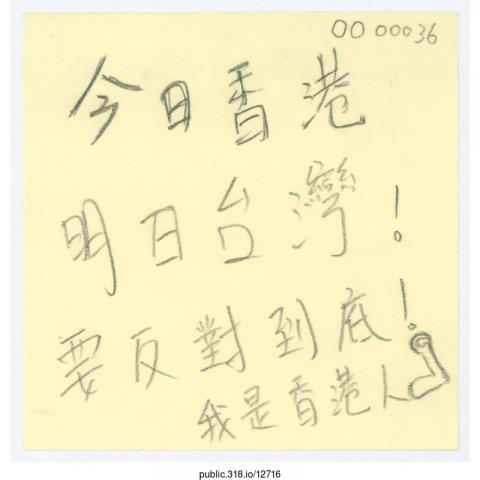 00 00036
今日香港
明日台灣!
要反對到底!
我是香港人
public.318.io/12716